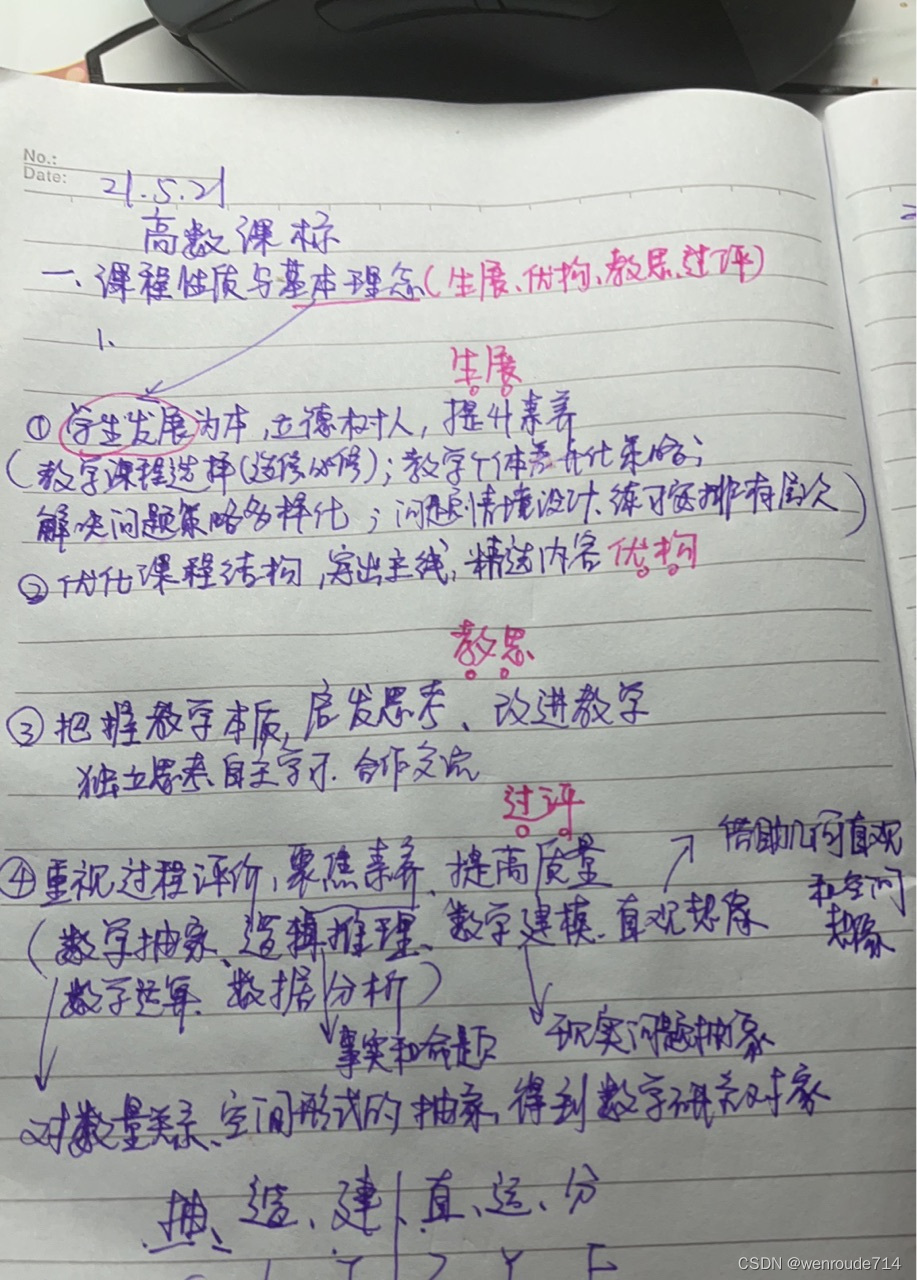 No.:
Date: 21.5.21
高数课标
一、课程性质与基本理念(生展、优构、教思、过评)
1、
生展
① 学生发展为本,立德树人,提升素养
(数学课程选择(选修必修);教学个体差异化策略;
解决问题策略多样化;问题情境设计、练习安排有层次)
② 优化课程结构,突出主线,精选内容 优构
教思
③ 把握数学本质,启发思考、改进教学
独立思考、自主学习、合作交流
过评
④ 重视过程评价,聚焦素养、提高质量
借助几何直观
和空间
想象
(数学抽象、逻辑推理、数学建模、直观想像
数学运算、数据分析)
事实和命题
现实问题抽象
对数量关系、空间形式的抽象,得到数学研究对象
抽、逻、建、直、运、分
CSDN @wenroude714